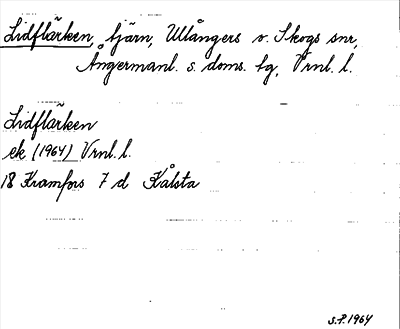 Lidflärken, tjärn, Ullångers o. Skogs snr,
Ångermanl. s. doms. tg, Vrnl. l.
Lidflärken
ek (1964) Vrnl. l.
18 Kramfors 7 d Kålsta
S.P. 1964